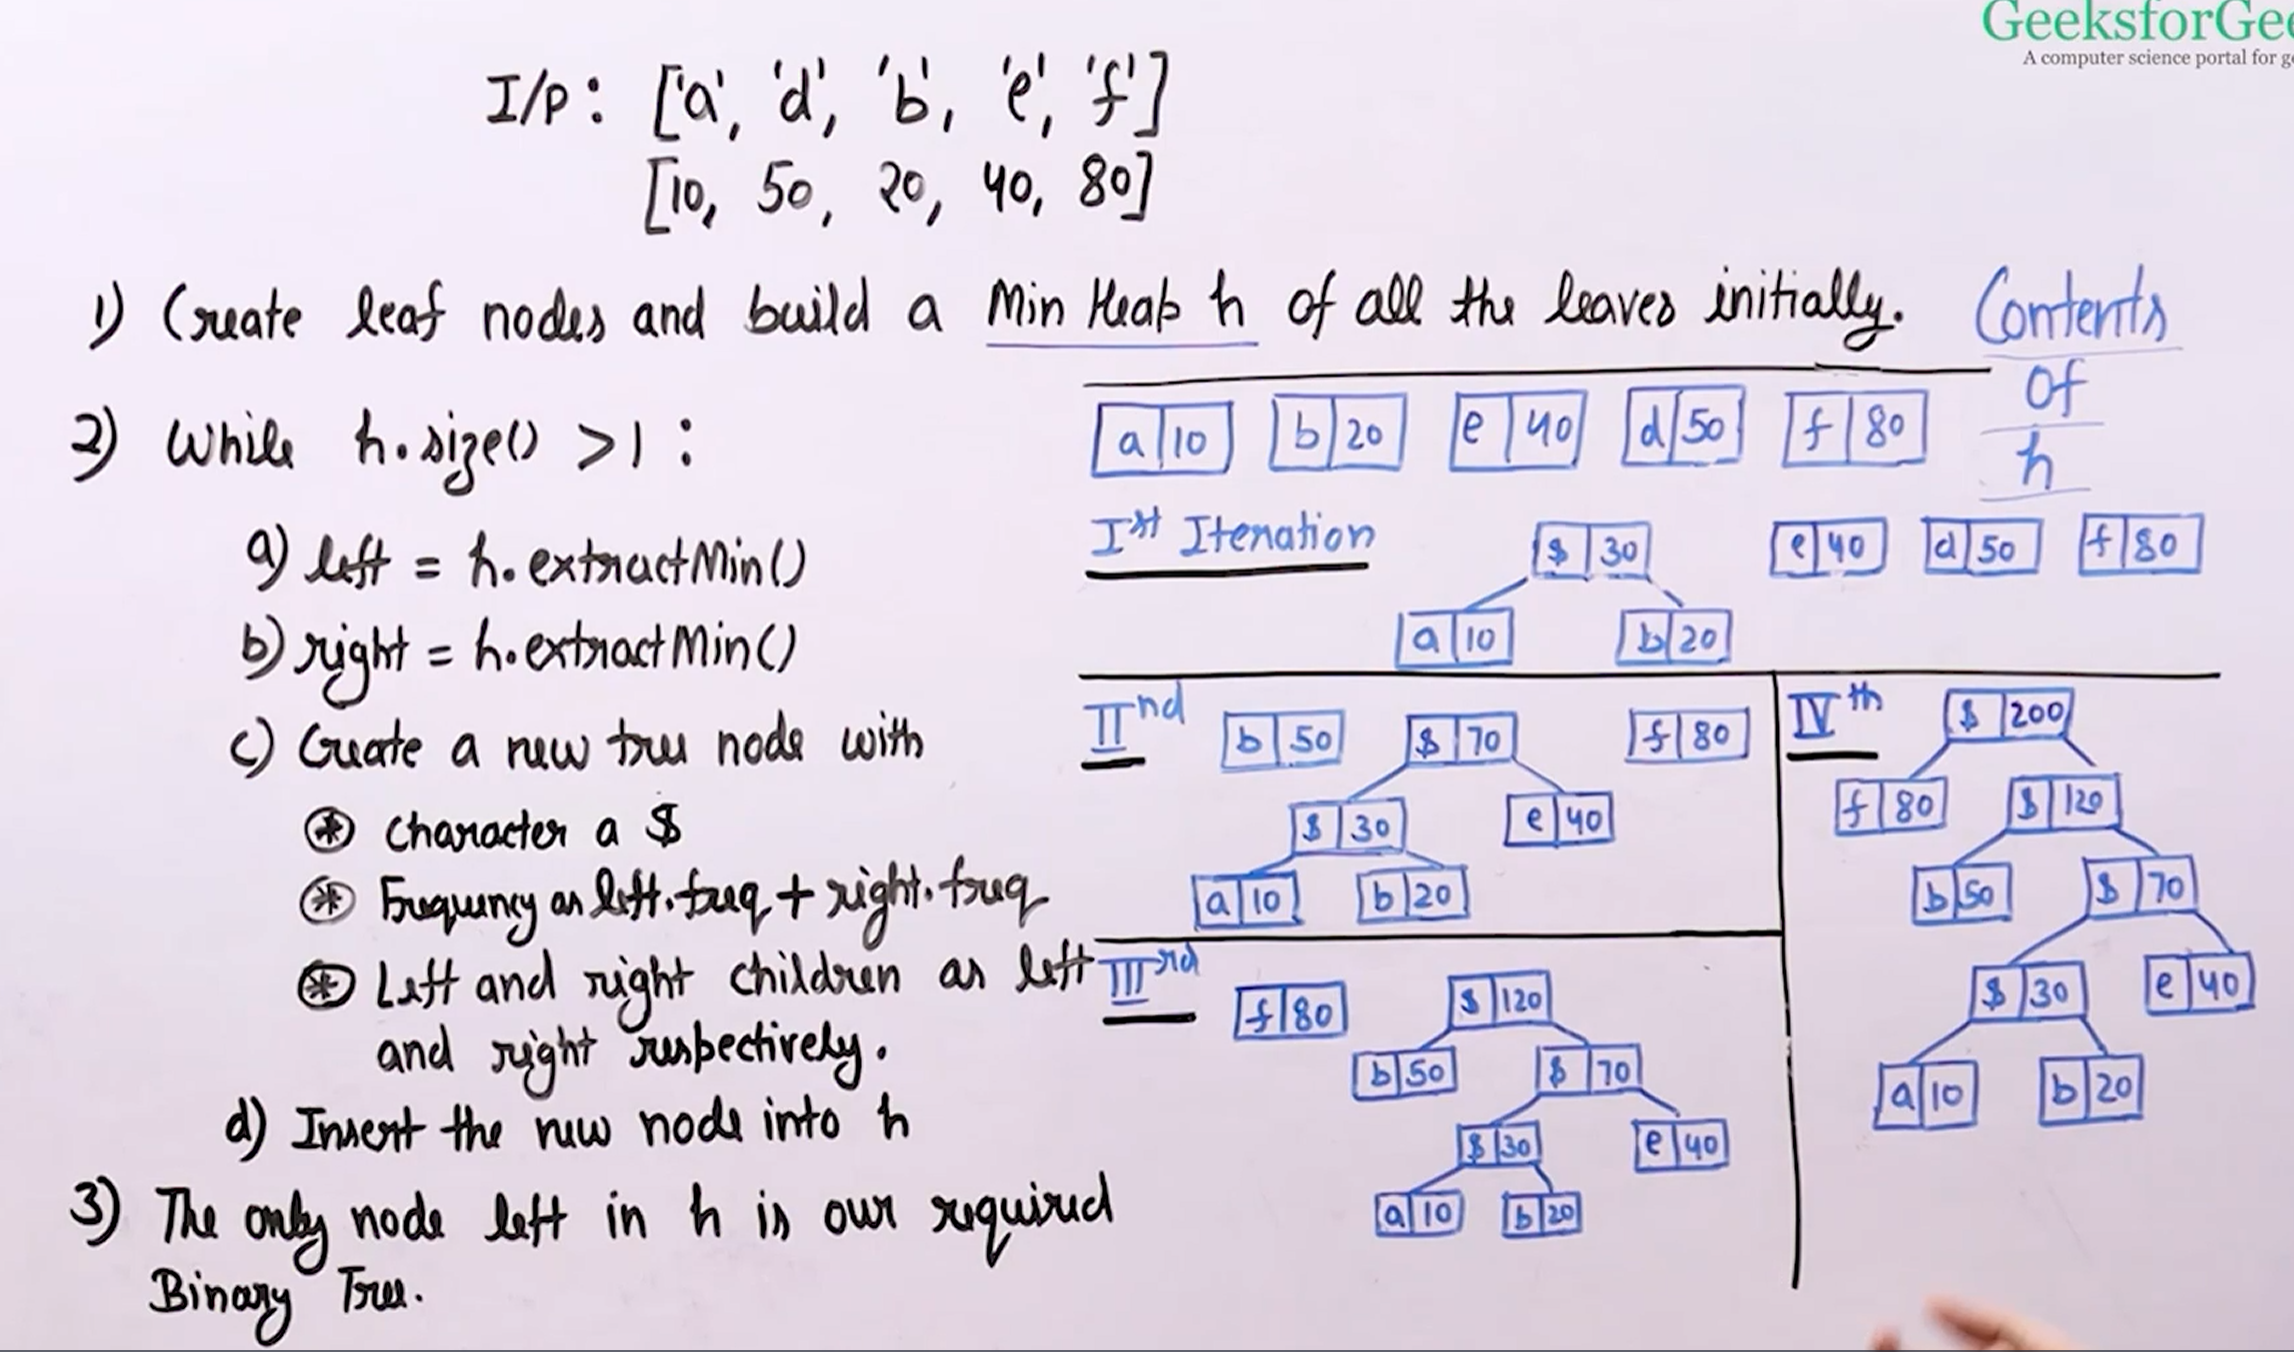 GeeksforGee
A computer science portal for ge
I/P: ['a', 'd', 'b', 'e', 'f']
[10, 50, 20, 40, 80]
1) Create leaf nodes and build a Min Heap h of all the leaves initially.
Contents
of
h
a 10 b 20 e 40 d 50 f 80
2) While h.size() >1 :
a) left = h.extractMin()
b) right = h.extractMin()
c) Create a new tree node with
* Character a $
* Frequency as left.freq + right.freq
* Left and right children as left
and right respectively.
d) Insert the new node into h
3) The only node left in h is our required
Binary Tree.
Ist Iteration
$ 30 e 40 d 50 f 80
a 10 b 20
IInd
b 50 $ 70 f 80
$ 30 e 40
a 10 b 20
IIIrd
f 80 $ 120
b 50 $ 70
$ 30 e 40
a 10 b 20
IVth
$ 200
f 80 $ 120
b 50 $ 70
$ 30 e 40
a 10 b 20